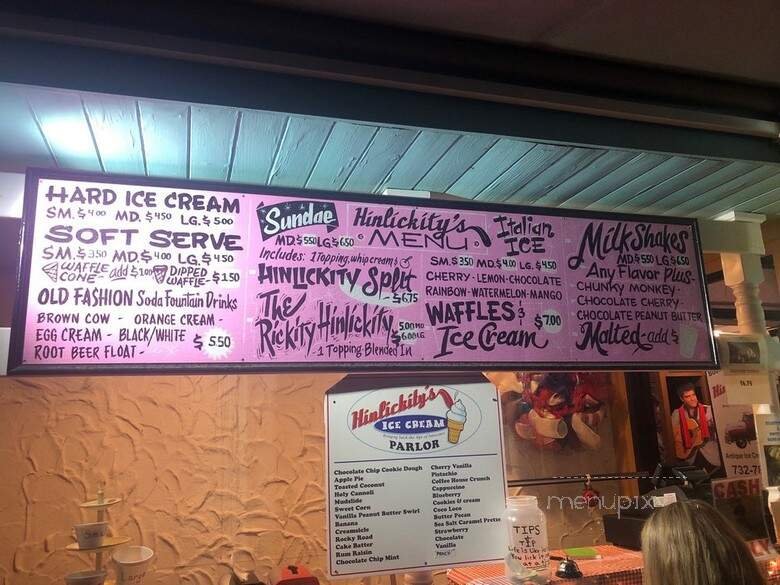 HARD ICE CREAM
SM. $4.00 MD. $4.50 LG. $5.00
SOFT SERVE
SM. $3.50 MD. $4.00 LG. $4.50
WAFFLE CONE add $1.00 DIPPED WAFFLE $1.50
OLD FASHION Soda Fountain Drinks
BROWN COW - ORANGE CREAM -
EGG CREAM - BLACK/WHITE
ROOT BEER FLOAT -
$5.50
Sundae
MD. $5.50 LG $6.50
Includes: 1 Topping, whip cream &
HINLICKITY Split
$6.75
The
Rickity Hinlickity
5.00 MD
$6.00 LG
1 Topping Blended In
Hinlickity's
MENU
Italian
ICE
SM. $3.50 MD. $4.00 LG. $4.50
CHERRY - LEMON - CHOCOLATE
RAINBOW - WATERMELON - MANGO
WAFFLES &
Ice Cream
$7.00
MilkShakes
MD. $5.50 LG $6.50
Any Flavor Plus -
CHUNKY MONKEY -
CHOCOLATE CHERRY -
CHOCOLATE PEANUT BUTTER
Malted - add $
Hinlickity's
ICE CREAM
PARLOR
Chocolate Chip Cookie Dough
Apple Pie
Toasted Coconut
Holy Cannoli
Mudslide
Sweet Corn
Vanilla Peanut Butter Swirl
Banana
Creamsicle
Rocky Road
Cake Batter
Rum Raisin
Chocolate Chip Mint
Cherry Vanilla
Pistachio
Coffee House Crunch
Cappuccino
Blueberry
Cookies & cream
Coco Loco
Butter Pecan
Sea Salt Caramel Pretze
Strawberry
Chocolate
Vanilla
PEACH
TIPS
TIP
Life is like
You lick it
at a
menupix
Antique Ice Cr
732-7
CASH